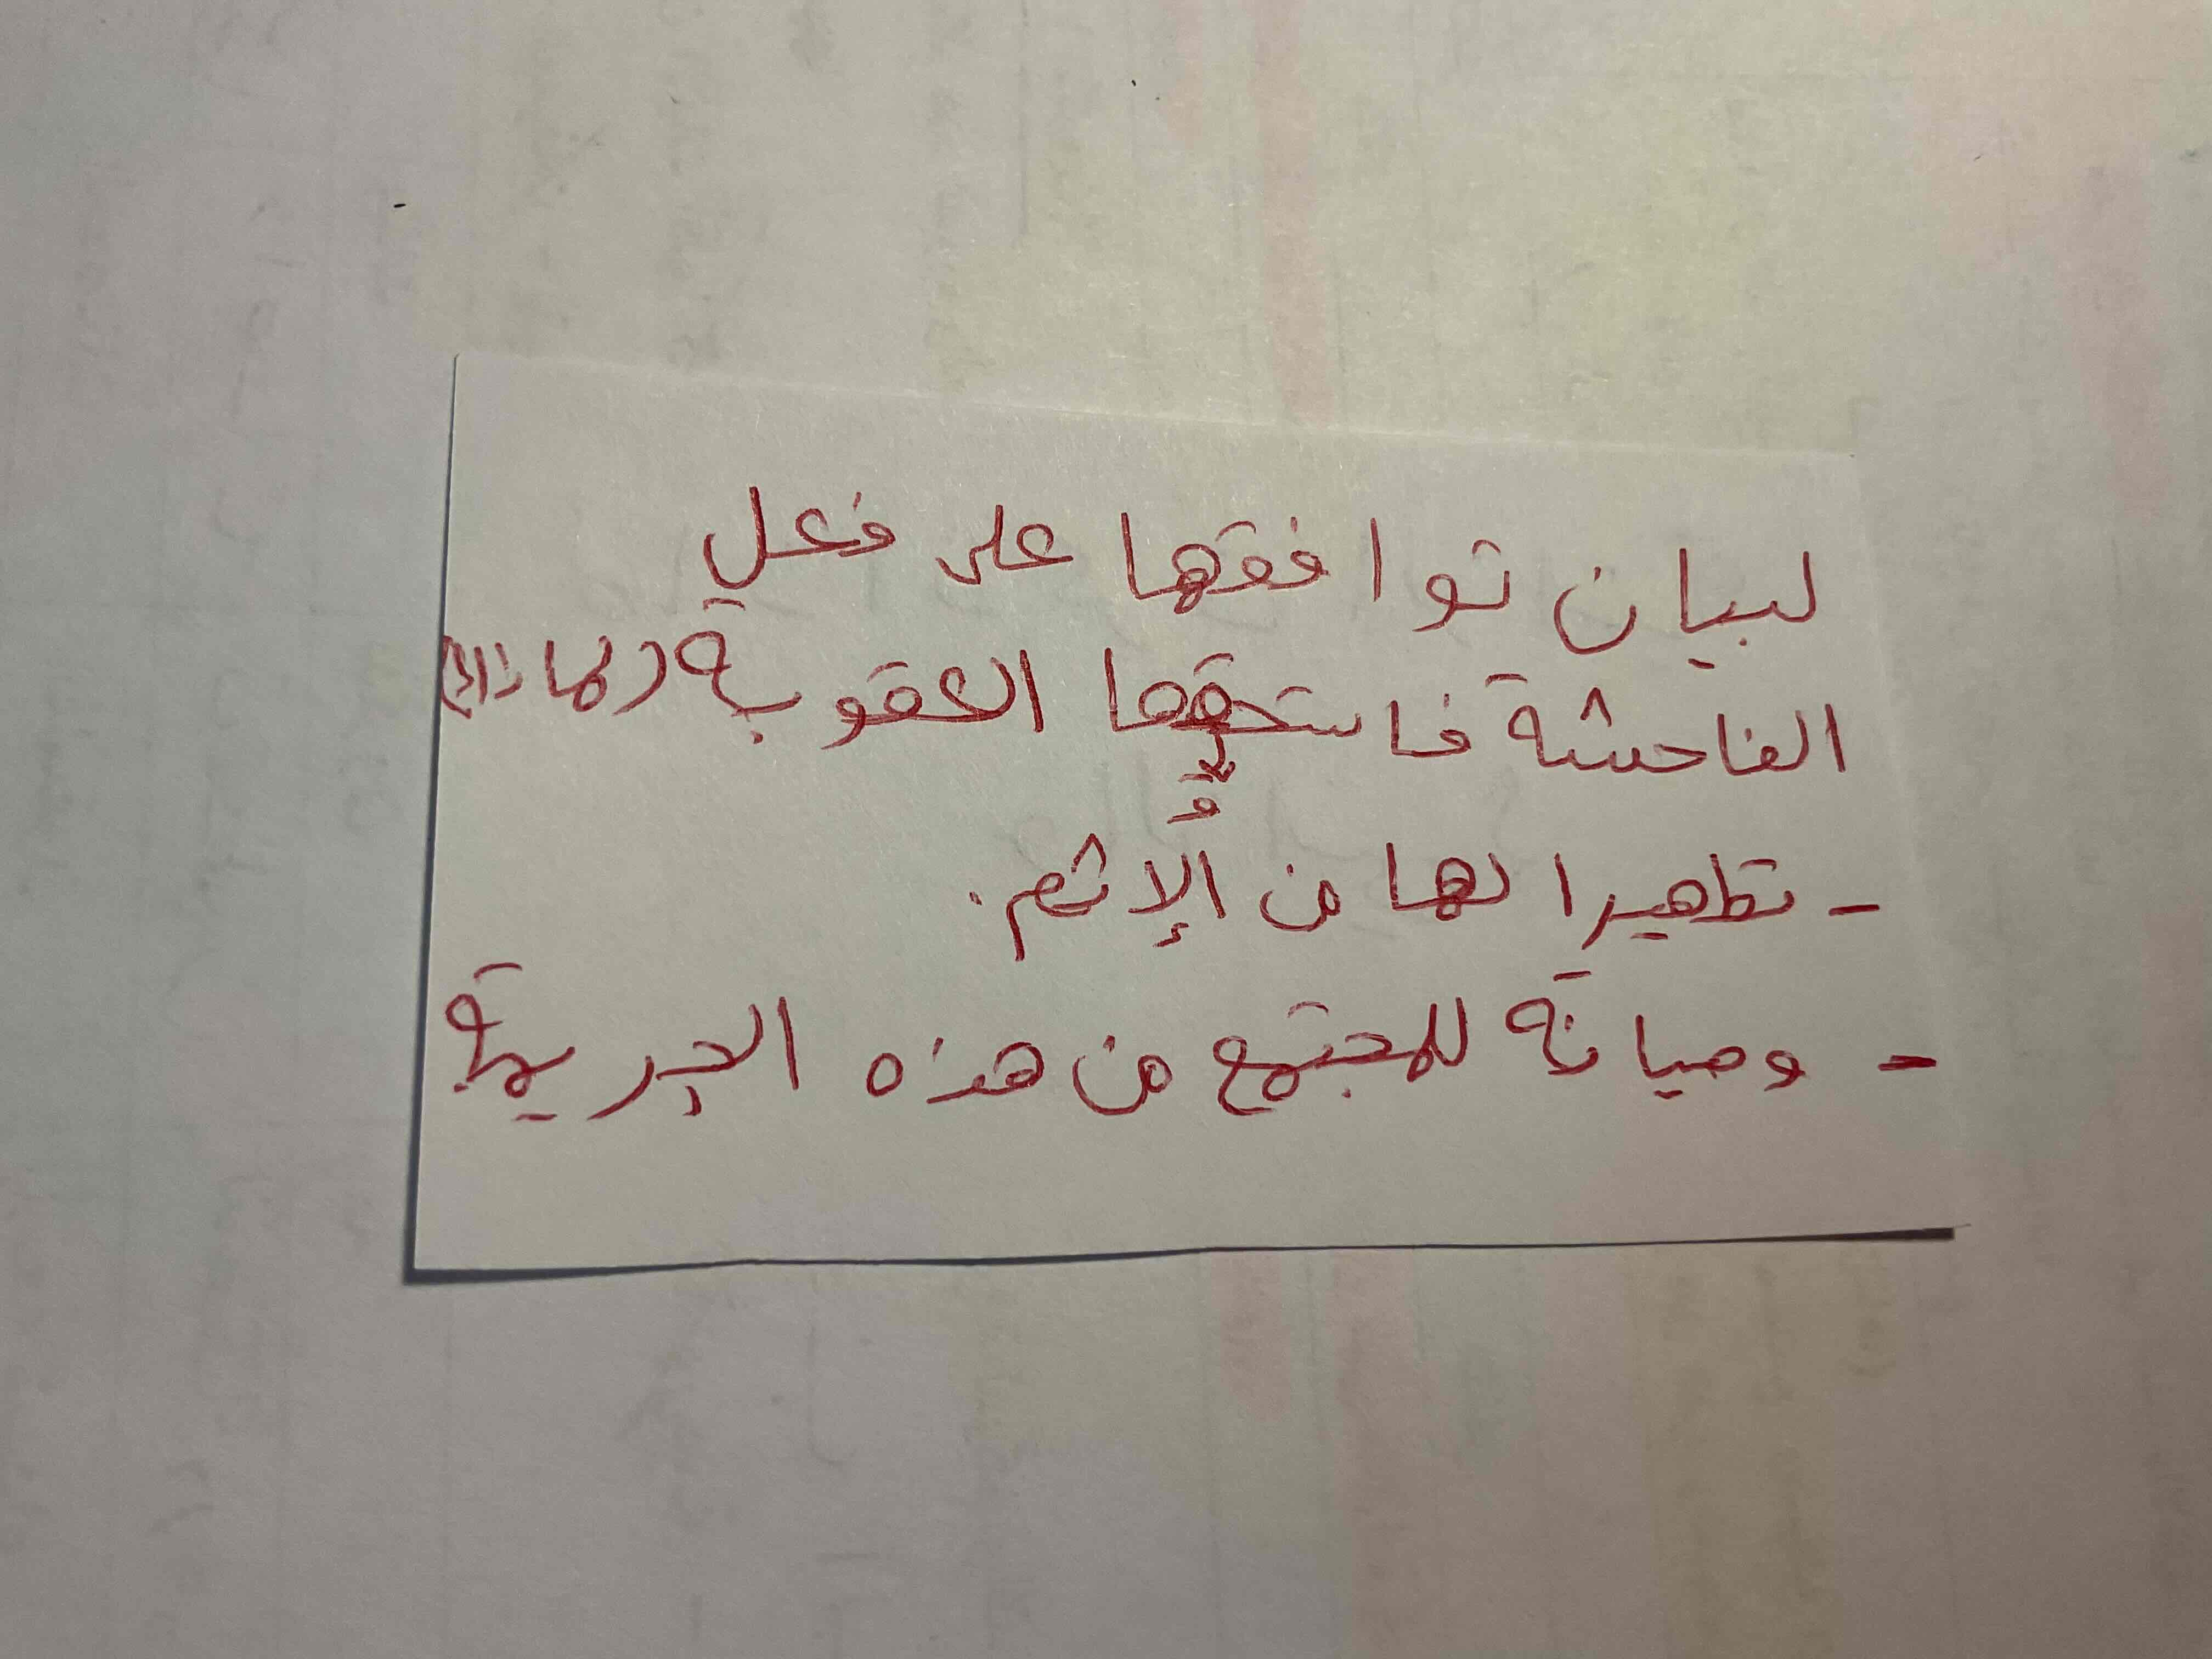 لبيان توافقهما على فعل
الفاحشة فاستحقهما العقوبة (لماذا؟)
قُّ
- تطهيرا لهما من الإثم.
- وصيانة للمجتمع من هذه الجريمة